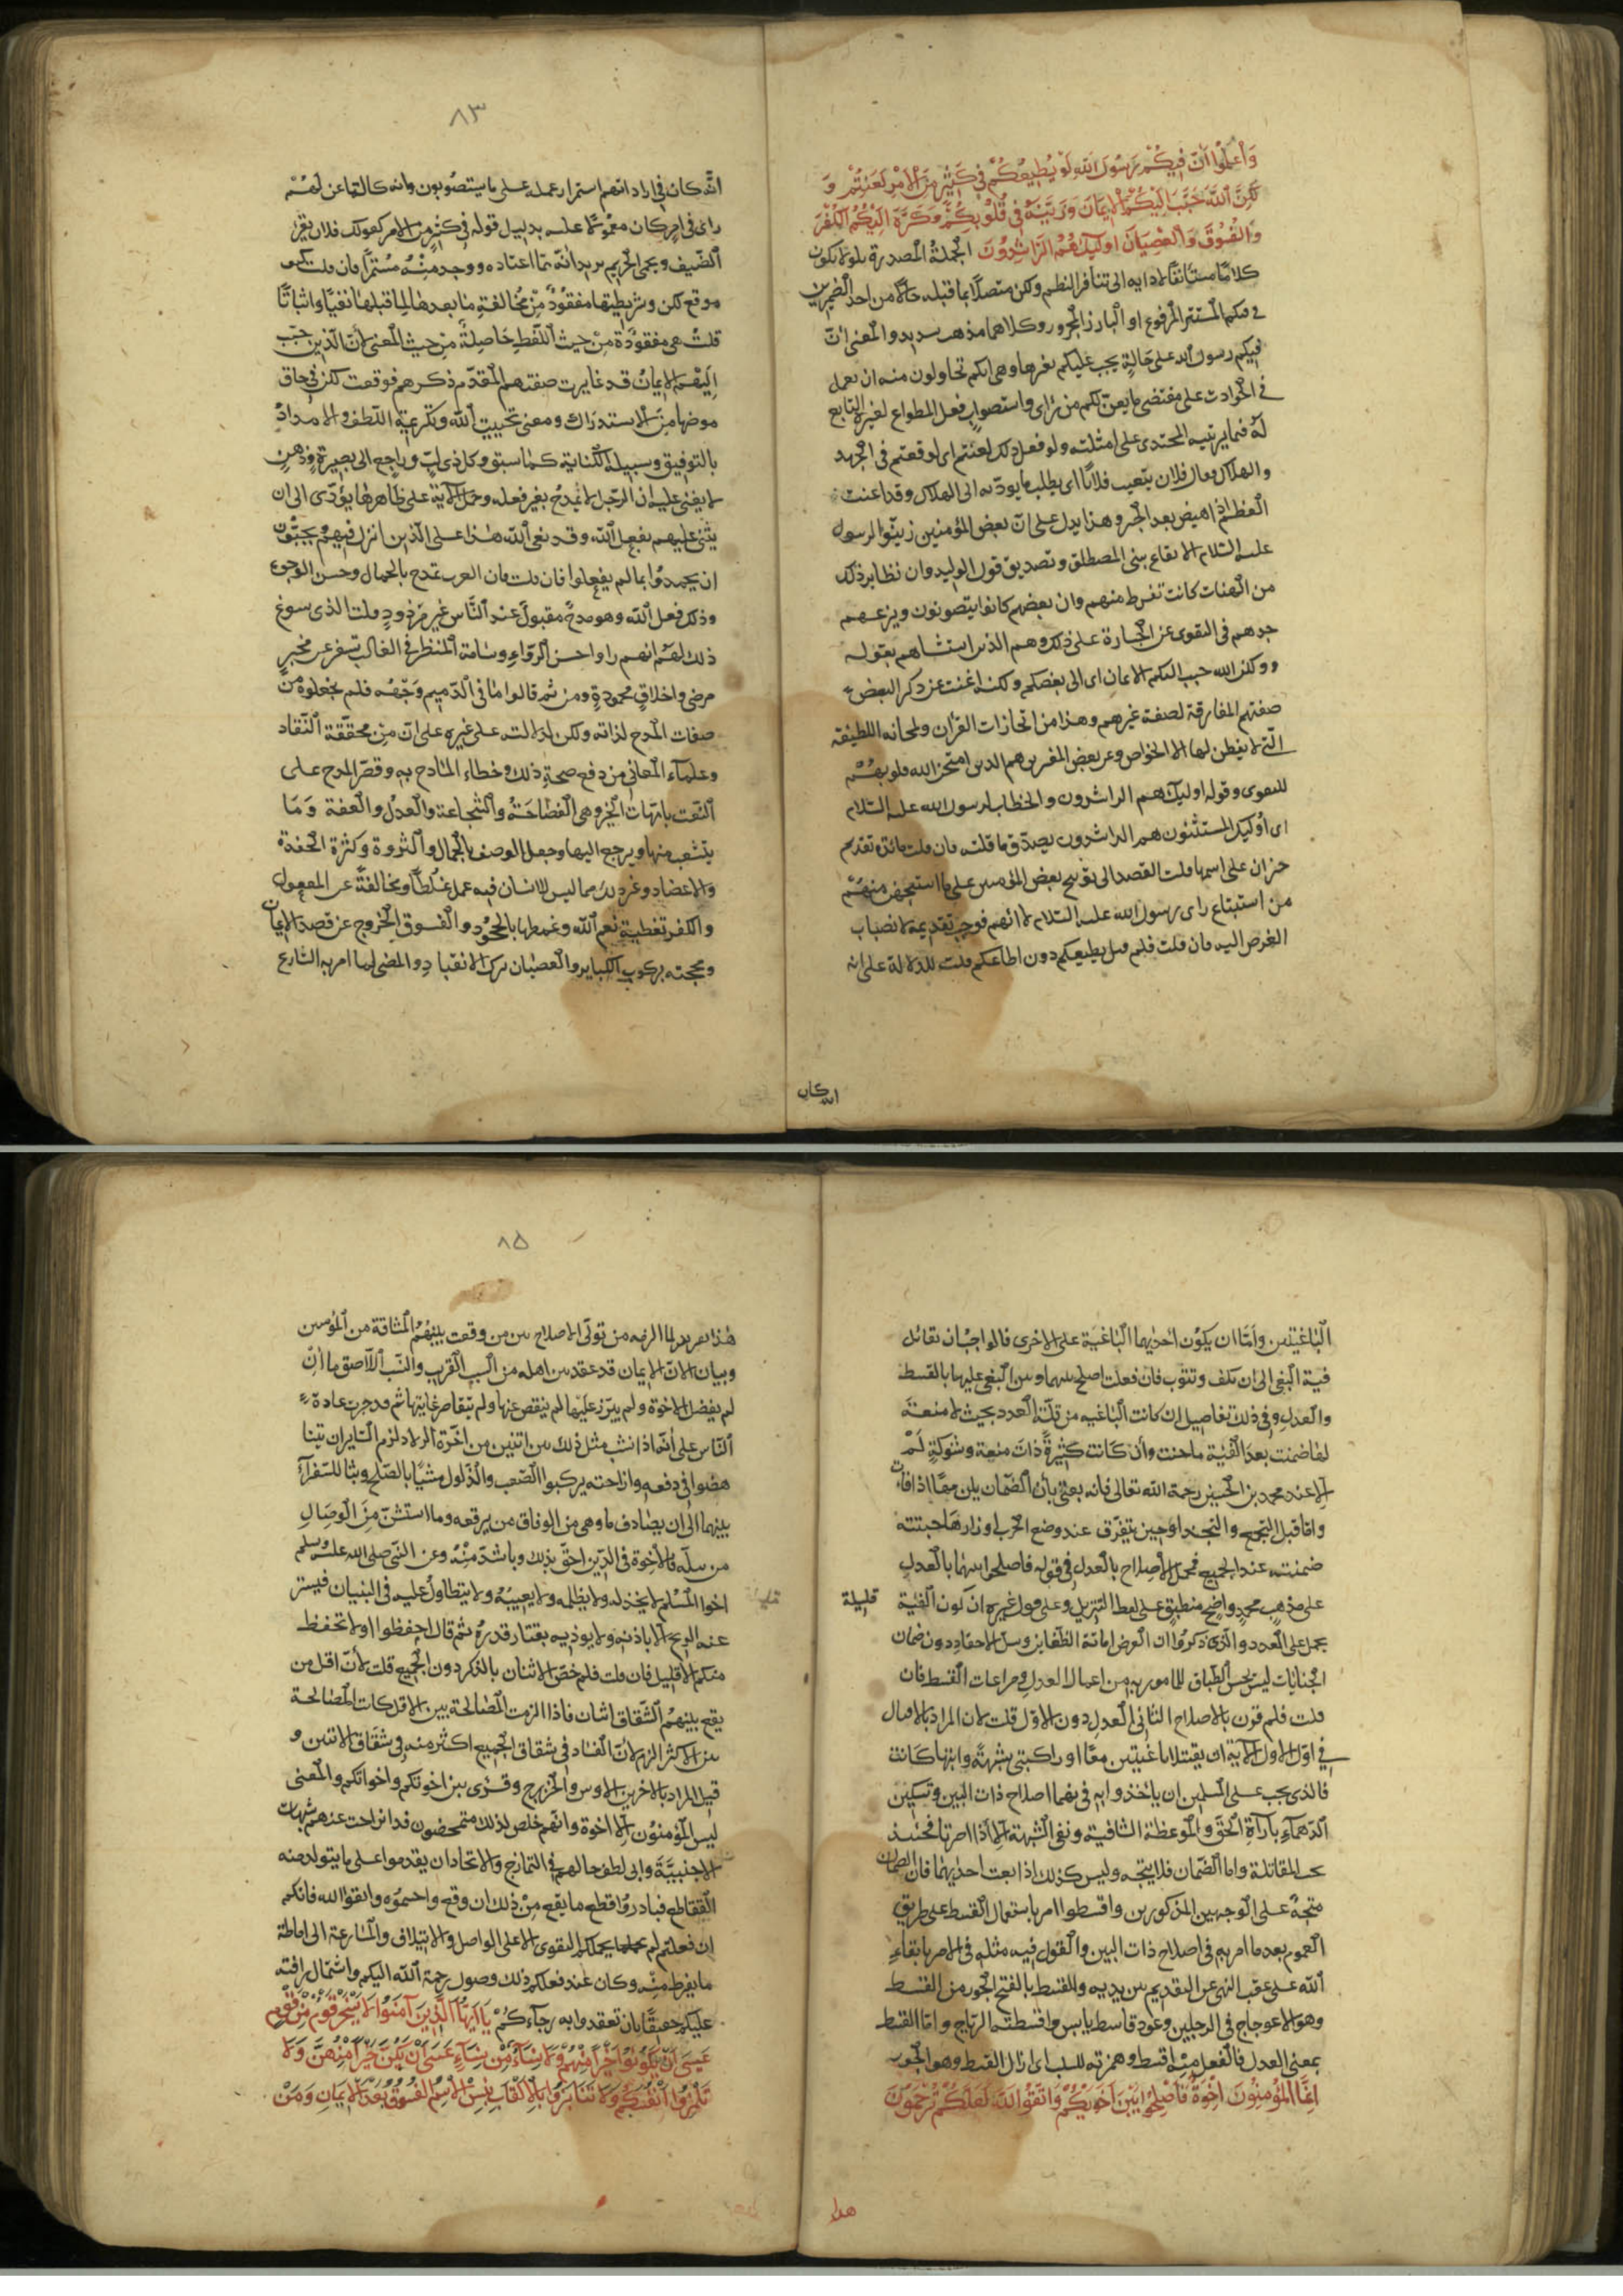 وَاعْلَمُوا أَنَّ فِيكُمْ رَسُولَ اللّهِ لَوْ يُطِيعُكُمْ فِي كَثِيرٍ مِنَ الْأَمْرِ لَعَنِتُّمْ وَ
لَكِنَّ اللّهَ حَبَّبَ إِلَيْكُمُ الْإِيمَانَ وَزَيَّنَهُ فِي قُلُوبِكُمْ وَكَرَّهَ إِلَيْكُمُ الْكُفْرَ
وَالْفُسُوقَ وَالْعِصْيَانَ اولَئِكَ هُمُ الرَّاشِدُونَ الجملة المصدرة بلو لا تكون
كلاما مستأنفا لادايه الى تنافر النظم ولكن متصلا بما قبله حالا من احد الضميرين
في فيكم المستتر المرفوع او البارز المجرور وكلاهما مذهب سديد والمعنى ان
فيكم رسول الله على حالة يجب عليكم تغيرها وهي انكم تحاولون منه ان يعمل
في الحوادث على مقتضى ما يعن لكم من راى واستصواب فعل المطواع لغيره التابع
له فيما يرتئيه المحتذى على امثلته ولو فعل ذلك لعنتم اى لوقعتم في الجهد
والهلاك يقال فلان يتعنت فلانا اى يطلب ما يوديه الى الهلاك وقد اعنت
العظم اذا هيض بعد الجبر وهذا يدل على ان بعض المؤمنين زينوا لرسول
عليه السلام الايقاع ببني المصطلق وتصديق قول الوليد وان نظاير ذلك
من الهنات كانت تفرط منهم وان بعضهم كانوا يتصونون ويزعهم
جدهم في التقوى عن الجسارة على ذلك وهم الذين استثناهم بقوله
ولكن الله حبب اليكم الايمان اى الى بعضكم ولكنه اغنت عن ذكر البعض
صفتهم المفارقة لصفة غيرهم وهذا من ايجازات القرآن ولمحاته اللطيفة
التي لا يفطن لها الا الخواص وعن بعض المفسرين هم الذين امتحن الله قلوبهم
للتقوى وقوله اوليك هم الراشدون والخطاب لرسول الله عليه السلام
اى اوليك المستثنون هم الراشدون يصدق ما قلته فان قلت ما فائدة تقديم
خبر ان على اسمها قلت القصد الى توبيخ بعض المؤمنين على ما استهجن منهم
من استتباع راى رسول الله عليه السلام لارائهم فوجب تقديمه لانصباب
الغرض اليه فان قلت فلم قيل يطيعكم دون اطاعكم قلت للدلالة على انه
انه كان
٨٣
انه كان في ارادتهم استمرار عمله على ما يستصوبون وانه كلما عن لهم
راى في امر كان معمولا عليه بدليل قوله في كثير من الامر كقولك فلان يقرى
الضيف ويحمى الحريم يريد انه مما اعتاده ووجد منه مستمرا فان قلت كيف
موقع لكن وشريطتها مفقودة من مخالفة ما بعدها لما قبلها نفيا واثباتا
قلت هي مفقودة من حيث اللفظ حاصلة من حيث المعنى لأن الذين حبب
اليهم الايمان قد غايرت صفتهم المقدم ذكرهم فوقعت لكن في حاق
موضعها من الاستدراك ومعنى تحبيب الله وتكريهه اللطف والامداد
بالتوفيق وسبيله الكناية كما سبق وكل ذى لب وراجع الى بصيرة وذهن
لا يغبى عليه ان الرجل لا يمدح بغير فعله وحمل الاية على ظاهرها يؤدى الى ان
يثنى عليهم بفعل الله وقد نعى الله هذا على الذين انزل فيهم ويحبون
ان يحمدوا بما لم يفعلوا فان قلت فان العرب تمدح بالجمال وحسن الوجوه
وذلك فعل الله وهو مدح مقبول عند الناس غير مردود قلت الذى سوغ
ذلك لهم انهم راوا حسن الرواء ووسامة المنظر في الغالب تسفر عن مخبر
مرضى واخلاق محمودة ومن ثم قالوا ما في الدميم وجهه فلم يجعلوه من
صفات المدح لذاته ولكن لدلالته على غيره على ان من محققة النقاد
وعلمآء المعاني من دفع صحة ذلك وخطاء المادح به وقصر المدح على
النعت بامهات الخير وهي الفصاحة والشجاعة والعدل والعفة وما
يتشعب منها ويرجع اليها وجعل الوصف بالجمال والثروة وكثرة الحفدة
والاعضاد وغير ذلك مما ليس للانسان فيه عمل غلطا ومخالفة عن المعقول
والكفر تغطية نعم الله وغمطها بالجحود والفسوق الخروج عن قصد الايمان
ومحجته بركوب الكباير والعصيان ترك الانقياد والمضى لما امر به الشارع
الباغيتين واما ان يكون احديهما الباغية على الاخرى فالواجب ان تقاتل
فية البغى الى ان تكف وتتوب فان فعلت اصلح بينها وبين البغى عليها بالقسط
والعدل وفي ذلك تفاصيل ان كانت الباغية من قلة العدد بحيث لا منعة
لها ضمنت بعد الفية ما جنت وان كانت كثيرة ذات منعة وشوكة لم
الا عند محمد بن الحسن رحمة الله تعالى فانه يفتى بأن الضمان يلزمها اذا فات
واما قبل التجمع والتجند او حين تتفرق عند وضع الحرب اوزارها فما جنته
ضمنته عند الجميع فمحمل الاصلاح بالعدل في قوله فاصلحوا بينهما بالعدل
على مذهب محمد واضح منطبق على لفظ التنزيل وعلى قول غيره ان كون الفية
قليلة
يحمل على العدد والذى ذكروا ان الغرض اماتة الظغاين وسل الاحقاد دون ضمان
الجنايات ليس بحسن الطباق للمامور به من اعمال العدل ومراعات القسط فان
قلت فلم قرن بالاصلاح الثانى العدل دون الاول قلت لان المراد بالاقتتال
في اول الاية ان يقتتلا باغيتين معا او راكبتى شبهة وايتها كانت
فالذى يجب على المسلمين ان يأخذوا به في نفيهما اصلاح ذات البين وتسكين
الدهمآء بارآة الحق والموعظة الشافية ونفى الشبهة الا اذا اصرتا فحينئذ
تجب المقاتلة واما الضمان فلا يتجه وليس كذلك اذا بغت احديهما فان الضمان
متجه على الوجهين المذكورين واقسطوا امر باستعمال القسط على طريق
العموم بعد ما امر به في اصلاح ذات البين والقول فيه مثله في الامر باتقاء
الله على عقب النهى عن التقديم بين يديه والقسط بالفتح الجور من القسط
وهو الاعوجاج في الرجلين وعود قاسط يابس واقسطته الرياح واما القسط
بمعنى العدل فالفعل منه اقسط وهمزته للسلب اى ازال القسط وهو الجور
إِنَّمَا الْمُؤْمِنُونَ إِخْوَةٌ فَأَصْلِحُوا بَيْنَ أَخَوَيْكُمْ وَاتَّقُوا اللَّهَ لَعَلَّكُمْ تُرْحَمُونَ
هذا
٨٥
هذا تقرير لما الزمه من تولى الاصلاح بين من وقعت بينهم المشاقة من المؤمنين
وبيان لان الايمان قد عقد بين اهله من السبب القريب والنسب اللاصق ما ان
لم يفضل الاخوة ولم يبرز عليها لم ينقص عنها ولم يتقاصر غايتها ثم قد جرت عادة
الناس على أنه اذا نشب مثل ذلك بين اثنين من اخوة الولاد لزم الساير ان يتناهضوا
في دفعه وازاحته يركبوا الصعب والذلول مشيا بالصلح وبثا للسفرآء
بينهما الى ان يصادف ما وهى من الوفاق من يرقعه وما استشن من الوصال
من يبله فالأخوة في الدين احق بذلك وباشد منه وعن النبي صلى الله عليه وسلم
اخوا المسلم لا يخذله ولا يظلمه ولا يعيبه ولا يتطاول عليه في البنيان فيستر
عنه الريح الا باذنه ولا يوذيه بقتار قدره ثم قال احفظوا ولا تحفظ
منكم الا قليل فان قلت فلم خص الاثنان بالذكر دون الجميع قلت لأن اقل من
يقع بينهم الشقاق اثنان فاذا الزمت المصالحة بين الاقل كانت المصالحة
بين الاكثر الزم لأن الفساد في شقاق الجميع اكثر منه في شقاق الاثنين و
قيل المراد بالاخوين الاوس والخزرج وقرى بين اخوتكم واخوانكم والمعنى
ليس المؤمنون الا اخوة وانهم خلص لذلك متمحضون قد انزاحت عنهم شبهات
الاجنبية وابى لطف حالهم في التمازج والاتحاد ان يقدموا على ما يتولد منه
التقاطع فبادروا قطع ما يقع من ذلك ان وقع واحسموه واتقوا الله فانكم
ان فعلتم لم يحملكم التقوى الا على التواصل والايتلاف والمسارعة الى اماطة
ما يفرط منه وكان عند فعلكم ذلك وصول رحمة الله اليكم واشتمال رافته
عليكم حقيقا بان تعقدوا به رجآءكم يَا أَيُّهَا الَّذِينَ آمَنُوا لَا يَسْخَرْ قَوْمٌ مِنْ قَوْمٍ
عَسَى أَنْ يَكُونُوا خَيْرًا مِنْهُمْ وَلَا نِسَآءٌ مِنْ نِسَآءٍ عَسَى أَنْ يَكُنَّ خَيْرًا مِنْهُنَّ وَلَا
تَلْمِزُوا أَنْفُسَكُمْ وَلَا تَنَابَزُوا بِالْأَلْقَابِ بِئْسَ الْاِسْمُ الْفُسُوقُ بَعْدَ الْإِيمَانِ وَمَنْ